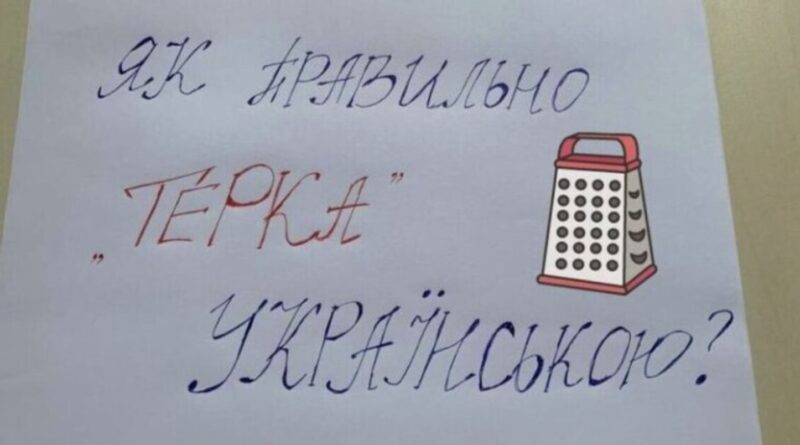 ЯК ПРАВИЛЬНО
„ТЕРКА”
УКРАЇНСЬКОЮ?